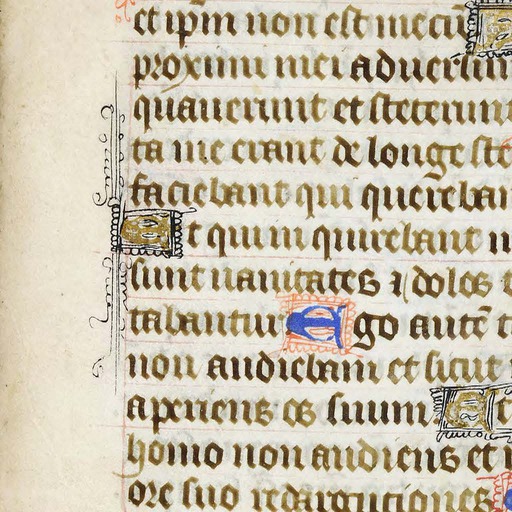 et ip̄m non est mecū
proximi mei aduersum
quauerunt et steterunt
ta me erant de longe ste
faciebant qui querebant
Et qui in quirebant m
sunt uanitates ⁊ dolos
tabantur Ego autē
non audiebam et sicut
aperiens os suum Et
homo non audiens et
ore suo redargutiones